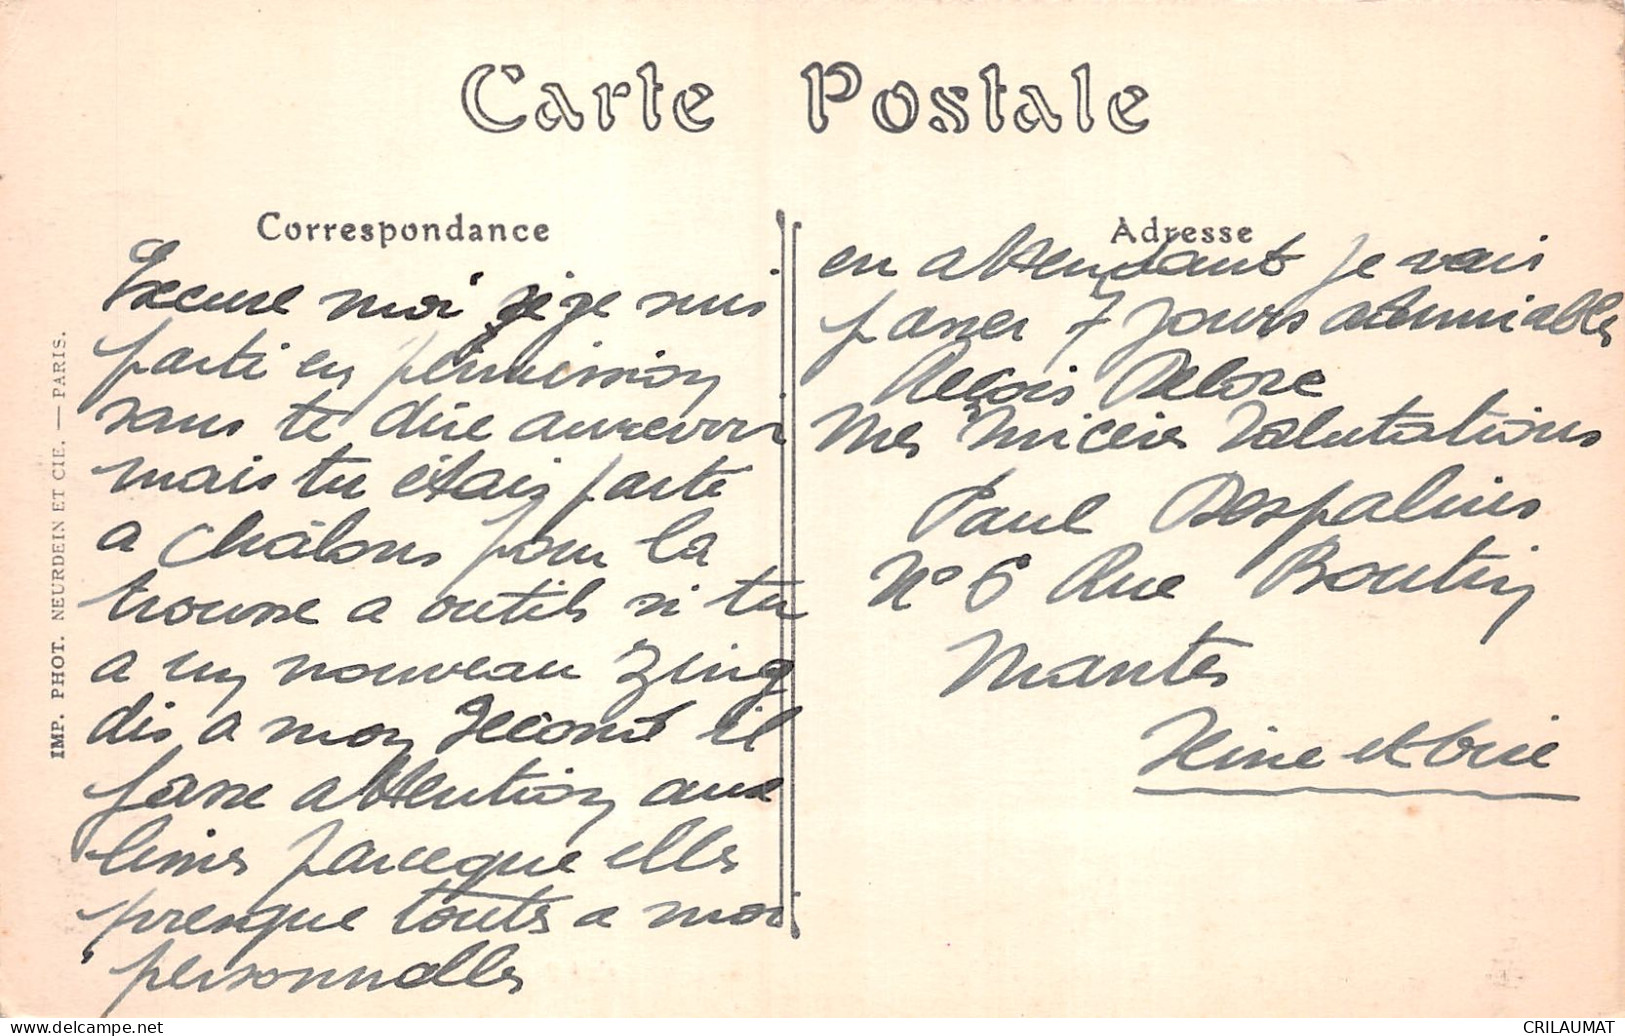 Carte Postale
Correspondance
Excuse moi je je suis
parti en permission
sans te dire aurevoir
mais tu étais parte
a Châlons pour la
trousse a outils si tu
a un nouveau zing
dis a mon second il
fasse attention aux
limes parceque elle
presque touts a moi
personnelles
Adresse
en attendant je vais
passer 7 jours admirables
Reçois Delore
mes sincères Salutations
Paul Despalins
N° 6 Rue Boutin
Mantes
Seine et Oise
IMP. PHOT. NEURDEIN ET CIE. — PARIS.
CRILAUMAT